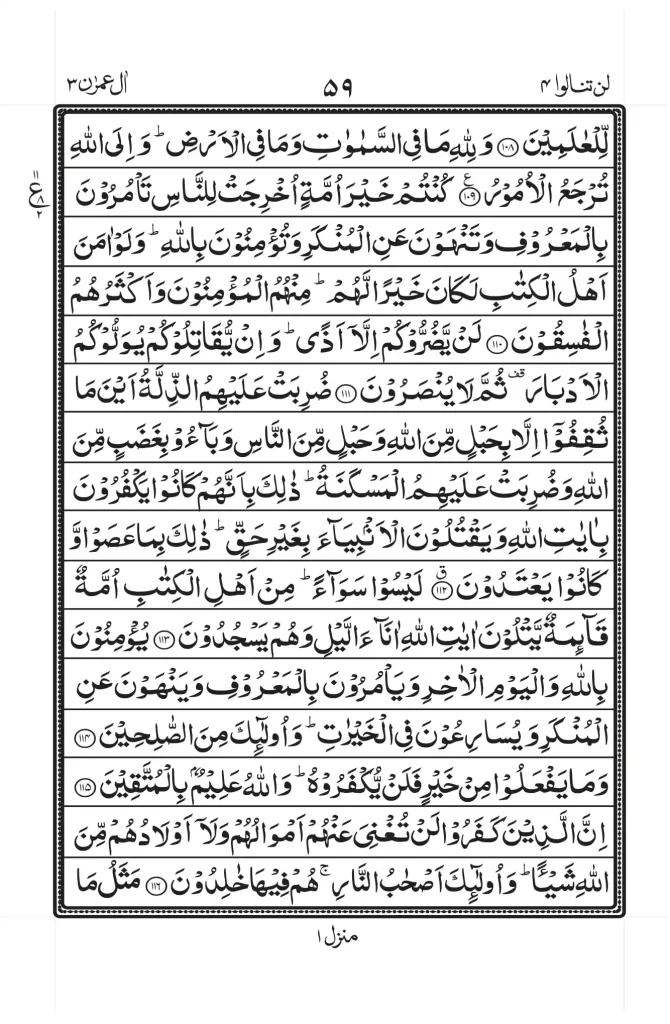 لن تنالوا ۴ ۵۹ اٰل عمرٰن ۳
لِّلْعٰلَمِیْنَ ﴿۱۰۸﴾ وَ لِلّٰهِ مَا فِی السَّمٰوٰتِ وَ مَا فِی الْاَرْضِ ؕ وَ اِلَی اللّٰهِ
تُرْجَعُ الْاُمُوْرُ ﴿۱۰۹﴾ ع كُنْتُمْ خَیْرَ اُمَّةٍ اُخْرِجَتْ لِلنَّاسِ تَاْمُرُوْنَ
۱۱ ع ۸ ۲
بِالْمَعْرُوْفِ وَ تَنْهَوْنَ عَنِ الْمُنْكَرِ وَ تُؤْمِنُوْنَ بِاللّٰهِ ؕ وَ لَوْ اٰمَنَ
اَهْلُ الْكِتٰبِ لَكَانَ خَیْرًا لَّهُمْ ؕ مِنْهُمُ الْمُؤْمِنُوْنَ وَ اَكْثَرُهُمُ
الْفٰسِقُوْنَ ﴿۱۱۰﴾ لَنْ یَّضُرُّوْكُمْ اِلَّاۤ اَذًی ؕ وَ اِنْ یُّقَاتِلُوْكُمْ یُوَلُّوْكُمُ
الْاَدْبَارَ ۫ قف ثُمَّ لَا یُنْصَرُوْنَ ﴿۱۱۱﴾ ضُرِبَتْ عَلَیْهِمُ الذِّلَّةُ اَیْنَ مَا
ثُقِفُوْۤا اِلَّا بِحَبْلٍ مِّنَ اللّٰهِ وَ حَبْلٍ مِّنَ النَّاسِ وَ بَآءُوْ بِغَضَبٍ مِّنَ
اللّٰهِ وَ ضُرِبَتْ عَلَیْهِمُ الْمَسْكَنَةُ ؕ ذٰلِكَ بِاَنَّهُمْ كَانُوْا یَكْفُرُوْنَ
بِاٰیٰتِ اللّٰهِ وَ یَقْتُلُوْنَ الْاَنْۢبِیَآءَ بِغَیْرِ حَقٍّ ؕ ذٰلِكَ بِمَا عَصَوْا وَّ
كَانُوْا یَعْتَدُوْنَ ﴿۱۱۲﴾ ق لَیْسُوْا سَوَآءً ؕ مِنْ اَهْلِ الْكِتٰبِ اُمَّةٌ
قَآىِٕمَةٌ یَّتْلُوْنَ اٰیٰتِ اللّٰهِ اٰنَآءَ الَّیْلِ وَ هُمْ یَسْجُدُوْنَ ﴿۱۱۳﴾ یُؤْمِنُوْنَ
بِاللّٰهِ وَ الْیَوْمِ الْاٰخِرِ وَ یَاْمُرُوْنَ بِالْمَعْرُوْفِ وَ یَنْهَوْنَ عَنِ
الْمُنْكَرِ وَ یُسَارِعُوْنَ فِی الْخَیْرٰتِ ؕ وَ اُولٰٓىِٕكَ مِنَ الصّٰلِحِیْنَ ﴿۱۱۴﴾
وَ مَا یَفْعَلُوْا مِنْ خَیْرٍ فَلَنْ یُّكْفَرُوْهُ ؕ وَ اللّٰهُ عَلِیْمٌۢ بِالْمُتَّقِیْنَ ﴿۱۱۵﴾
اِنَّ الَّذِیْنَ كَفَرُوْا لَنْ تُغْنِیَ عَنْهُمْ اَمْوَالُهُمْ وَ لَاۤ اَوْلَادُهُمْ مِّنَ
اللّٰهِ شَیْــًٔا ؕ وَ اُولٰٓىِٕكَ اَصْحٰبُ النَّارِ ۚ هُمْ فِیْهَا خٰلِدُوْنَ ﴿۱۱۶﴾ مَثَلُ مَا
منزل ۱